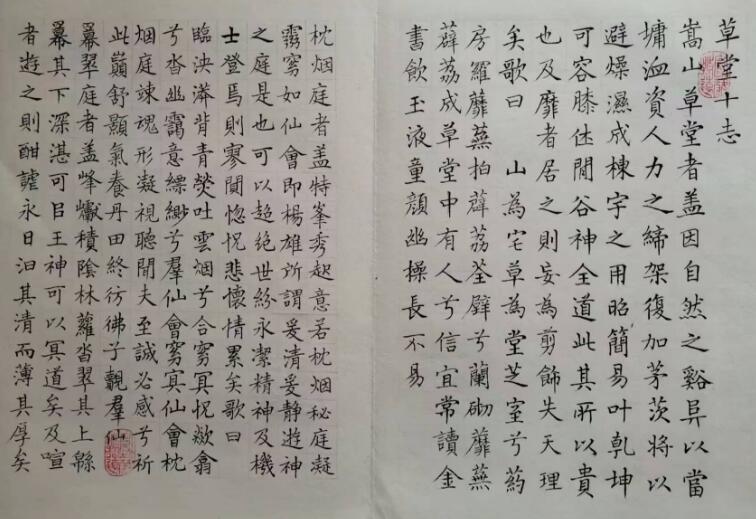 草堂十志
嵩山草堂者盖因自然之谿阜以當
墉洫資人力之締架復加茅茨將以
避燥濕成棟宇之用昭簡易叶乾坤
可容膝休閒谷神全道此其所以貴
也及靡者居之則妄為剪飾失天理
矣歌曰 山為宅草為堂芝室兮葯
房羅蘼蕪拍薜荔荃壁兮蘭砌蘼蕪
薜荔成草堂中有人兮信宜常讀金
書飲玉液童顏幽操長不易
枕烟庭者盖特峯秀起意若枕烟秘庭凝
靄窅如仙會即楊雄所謂爰清爰静遊神
之庭是也可以超絕世紛永潔精神及機
士登焉則寥閴惚怳悲懷情累矣歌曰
臨泱漭背青熒吐雲烟兮合窅冥怳欻翕
兮沓幽靄意縹緲兮羣仙會窅冥仙會枕
烟庭竦魂形凝視聽聞夫至誠必感兮祈
此巔舒顥氣養丹田終彷彿子覯羣仙
冪翠庭者盖峰巘積陰林蘿沓翠其上緜
冪其下深湛可㠯王神可以冥道矣及喧
者遊之則酣謔永日汩其清而薄其厚矣